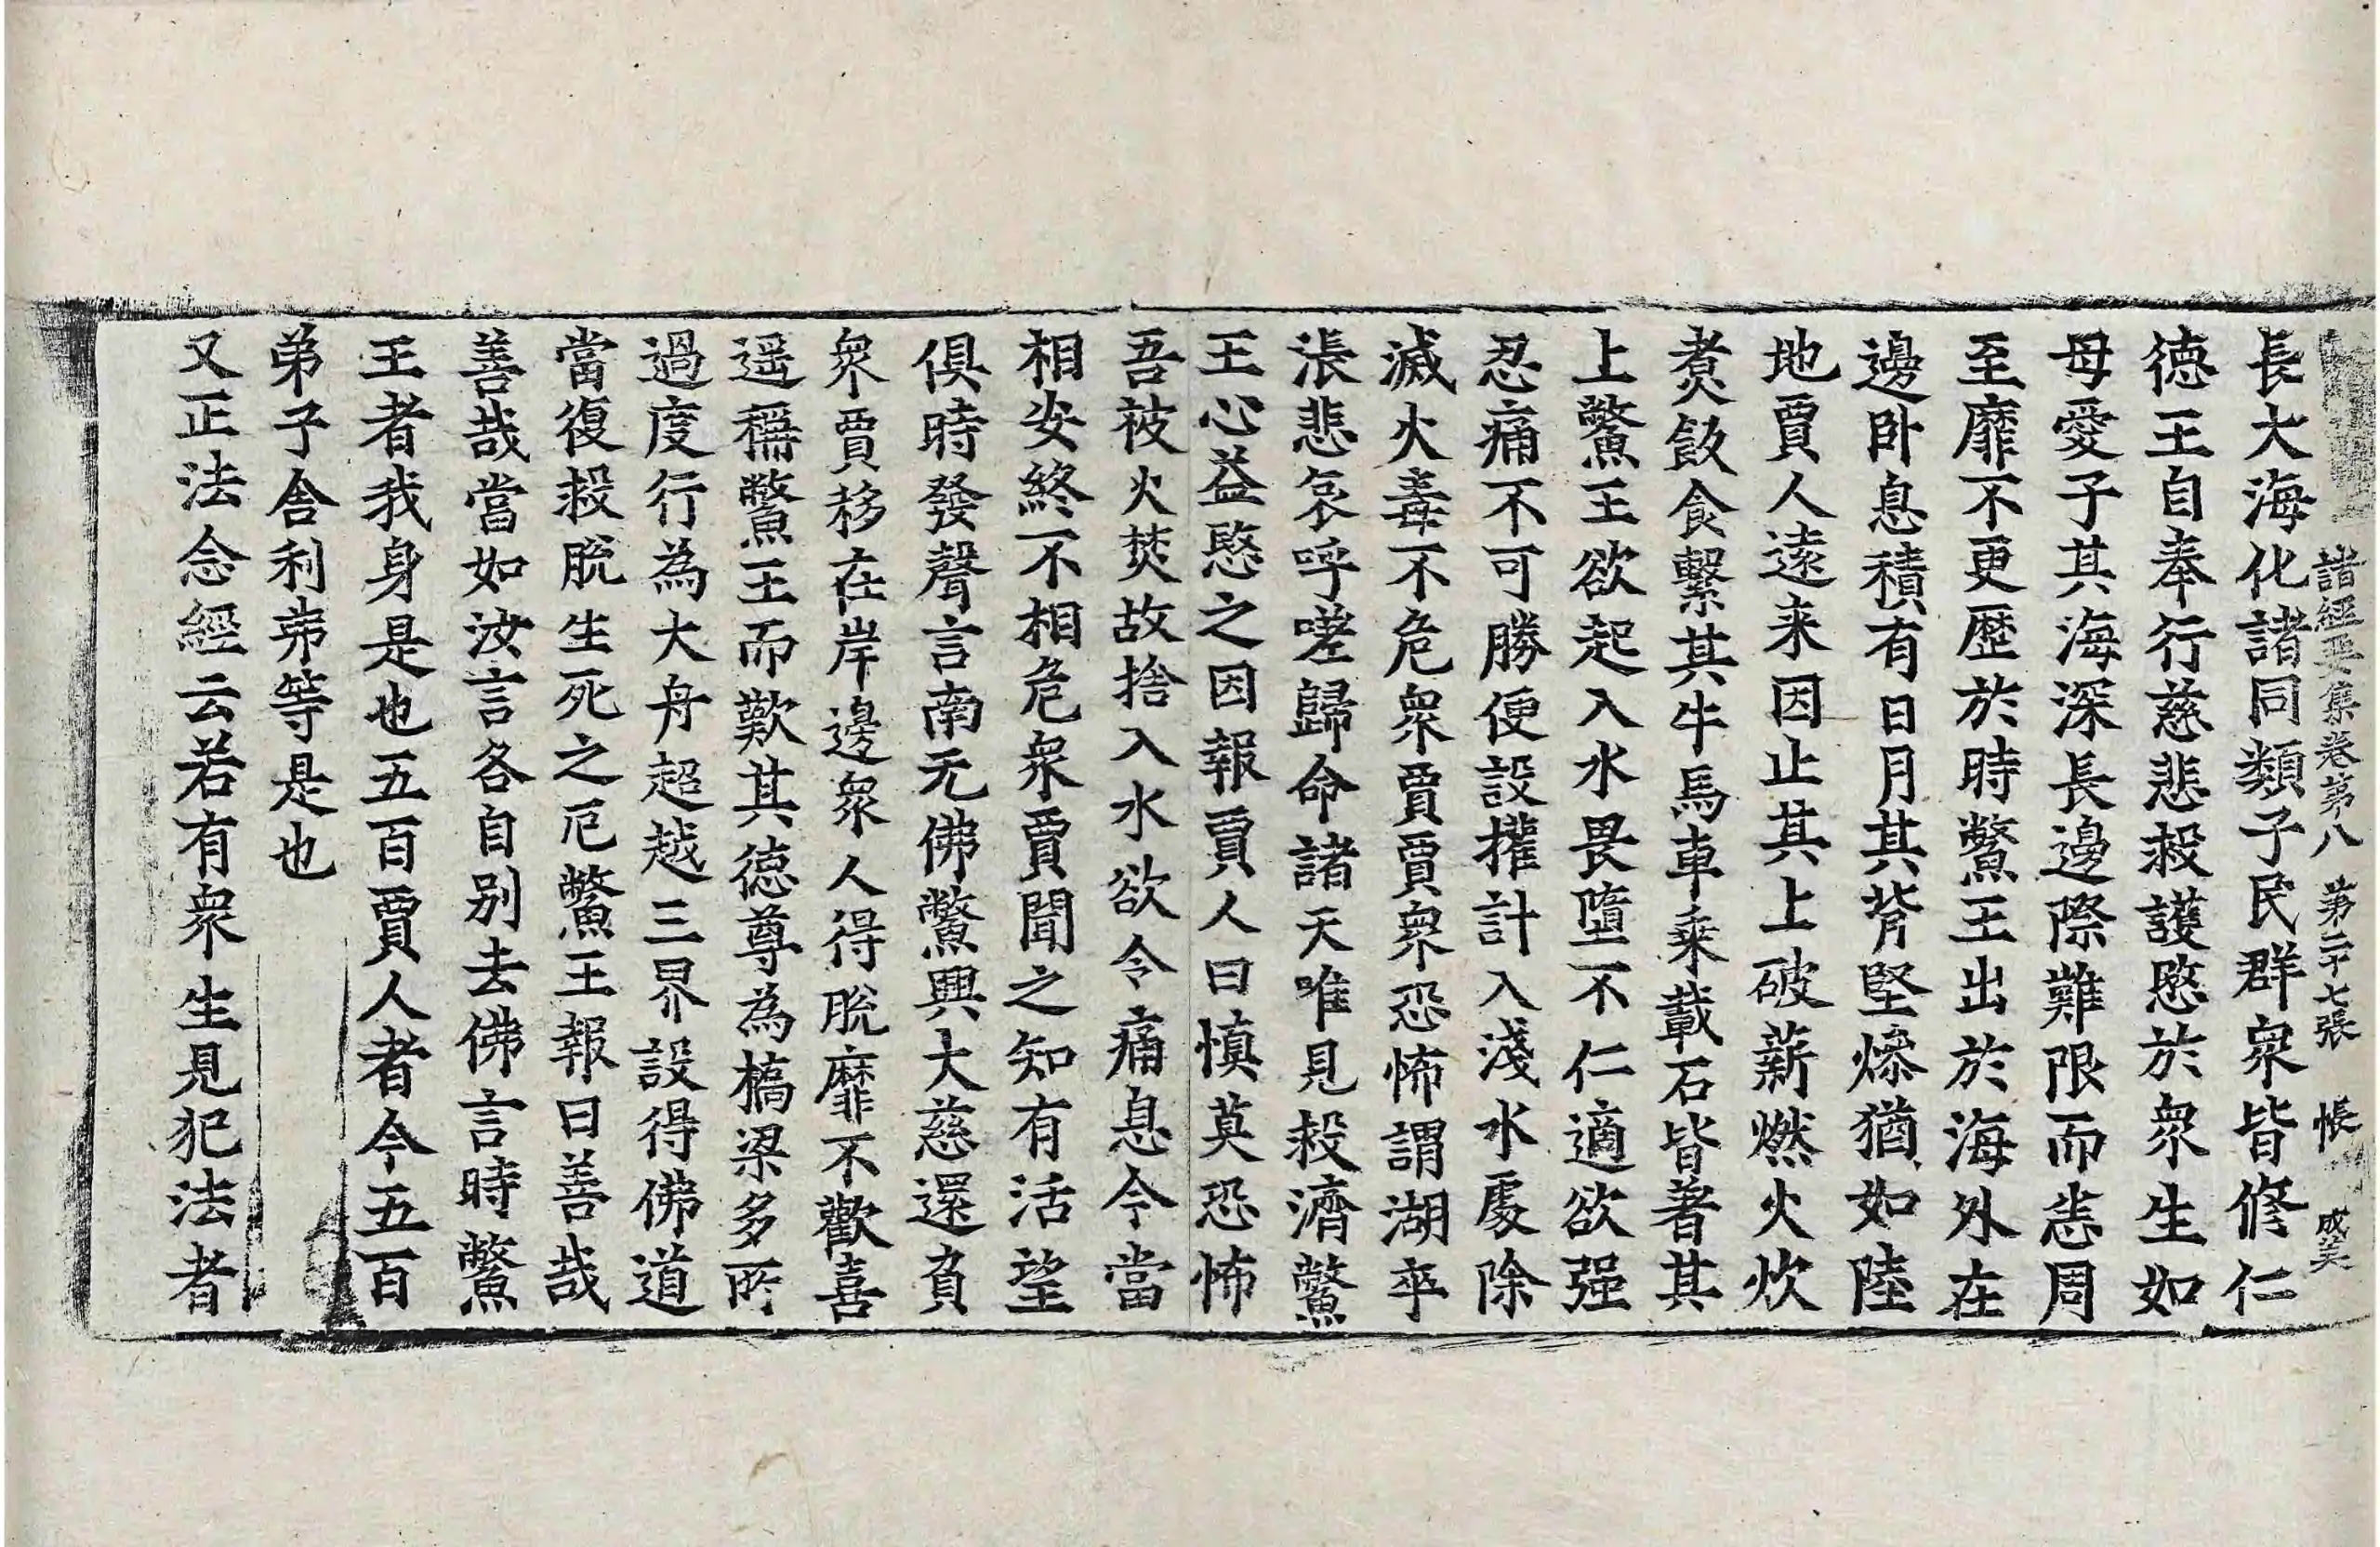 諸經要集卷第八 第二十七張 帳 成美
長大海化諸同類子民群衆皆修仁
德王自奉行慈悲救護愍於衆生如
母愛子其海深長邊際難限而悉周
至靡不更歷於時鱉王出於海外在
邊卧息積有日月其背堅燥猶如陸
地賈人遠来因止其上破薪燃火炊
煑飯食繫其牛馬車乗載石皆著其
上鱉王欲起入水畏墮不仁適欲强
忍痛不可勝便設㩲計入淺水處除
滅火毒不危衆賈賈衆恐怖謂湖卒
漲悲哀呼嗟歸命諸天唯見救濟鱉
王心益愍之因報賈人曰慎莫恐怖
吾被火焚故捨入水欲令痛息今當
相安終不相危衆賈聞之知有活望
俱時發聲言南无佛鱉興大慈還負
衆賈移在岸邊衆人得脫靡不歡喜
遥稱鱉王而歎其德尊為橋梁多所
過度行為大舟超越三界設得佛道
當復救脫生死之厄鱉王報曰善哉
善哉當如汝言各自别去佛言時鱉
王者我身是也五百賈人者今五百
弟子舍利弗等是也
又正法念經云若有衆生見犯法者